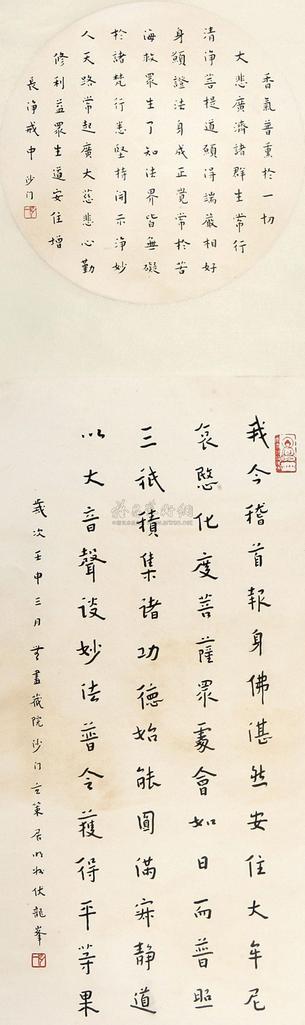 香氣普熏於一切
大悲廣濟諸群生常行
清淨菩提道願得端嚴相好
身願證法身成正覺常於苦
海救眾生了知法界皆無礙
於諸梵行悉堅持開示淨妙
人天路常起廣大慈悲心勤
修利益眾生道安住增
長淨戒中 沙门
我今稽首報身佛湛然安住大牟尼
哀愍化度菩薩眾處會如日而普照
三祇積集诸功德始能圓滿寂静道
以大音聲设妙法普令獲得平等果
歲次壬申三月 藏院沙门 居 伏龍峯